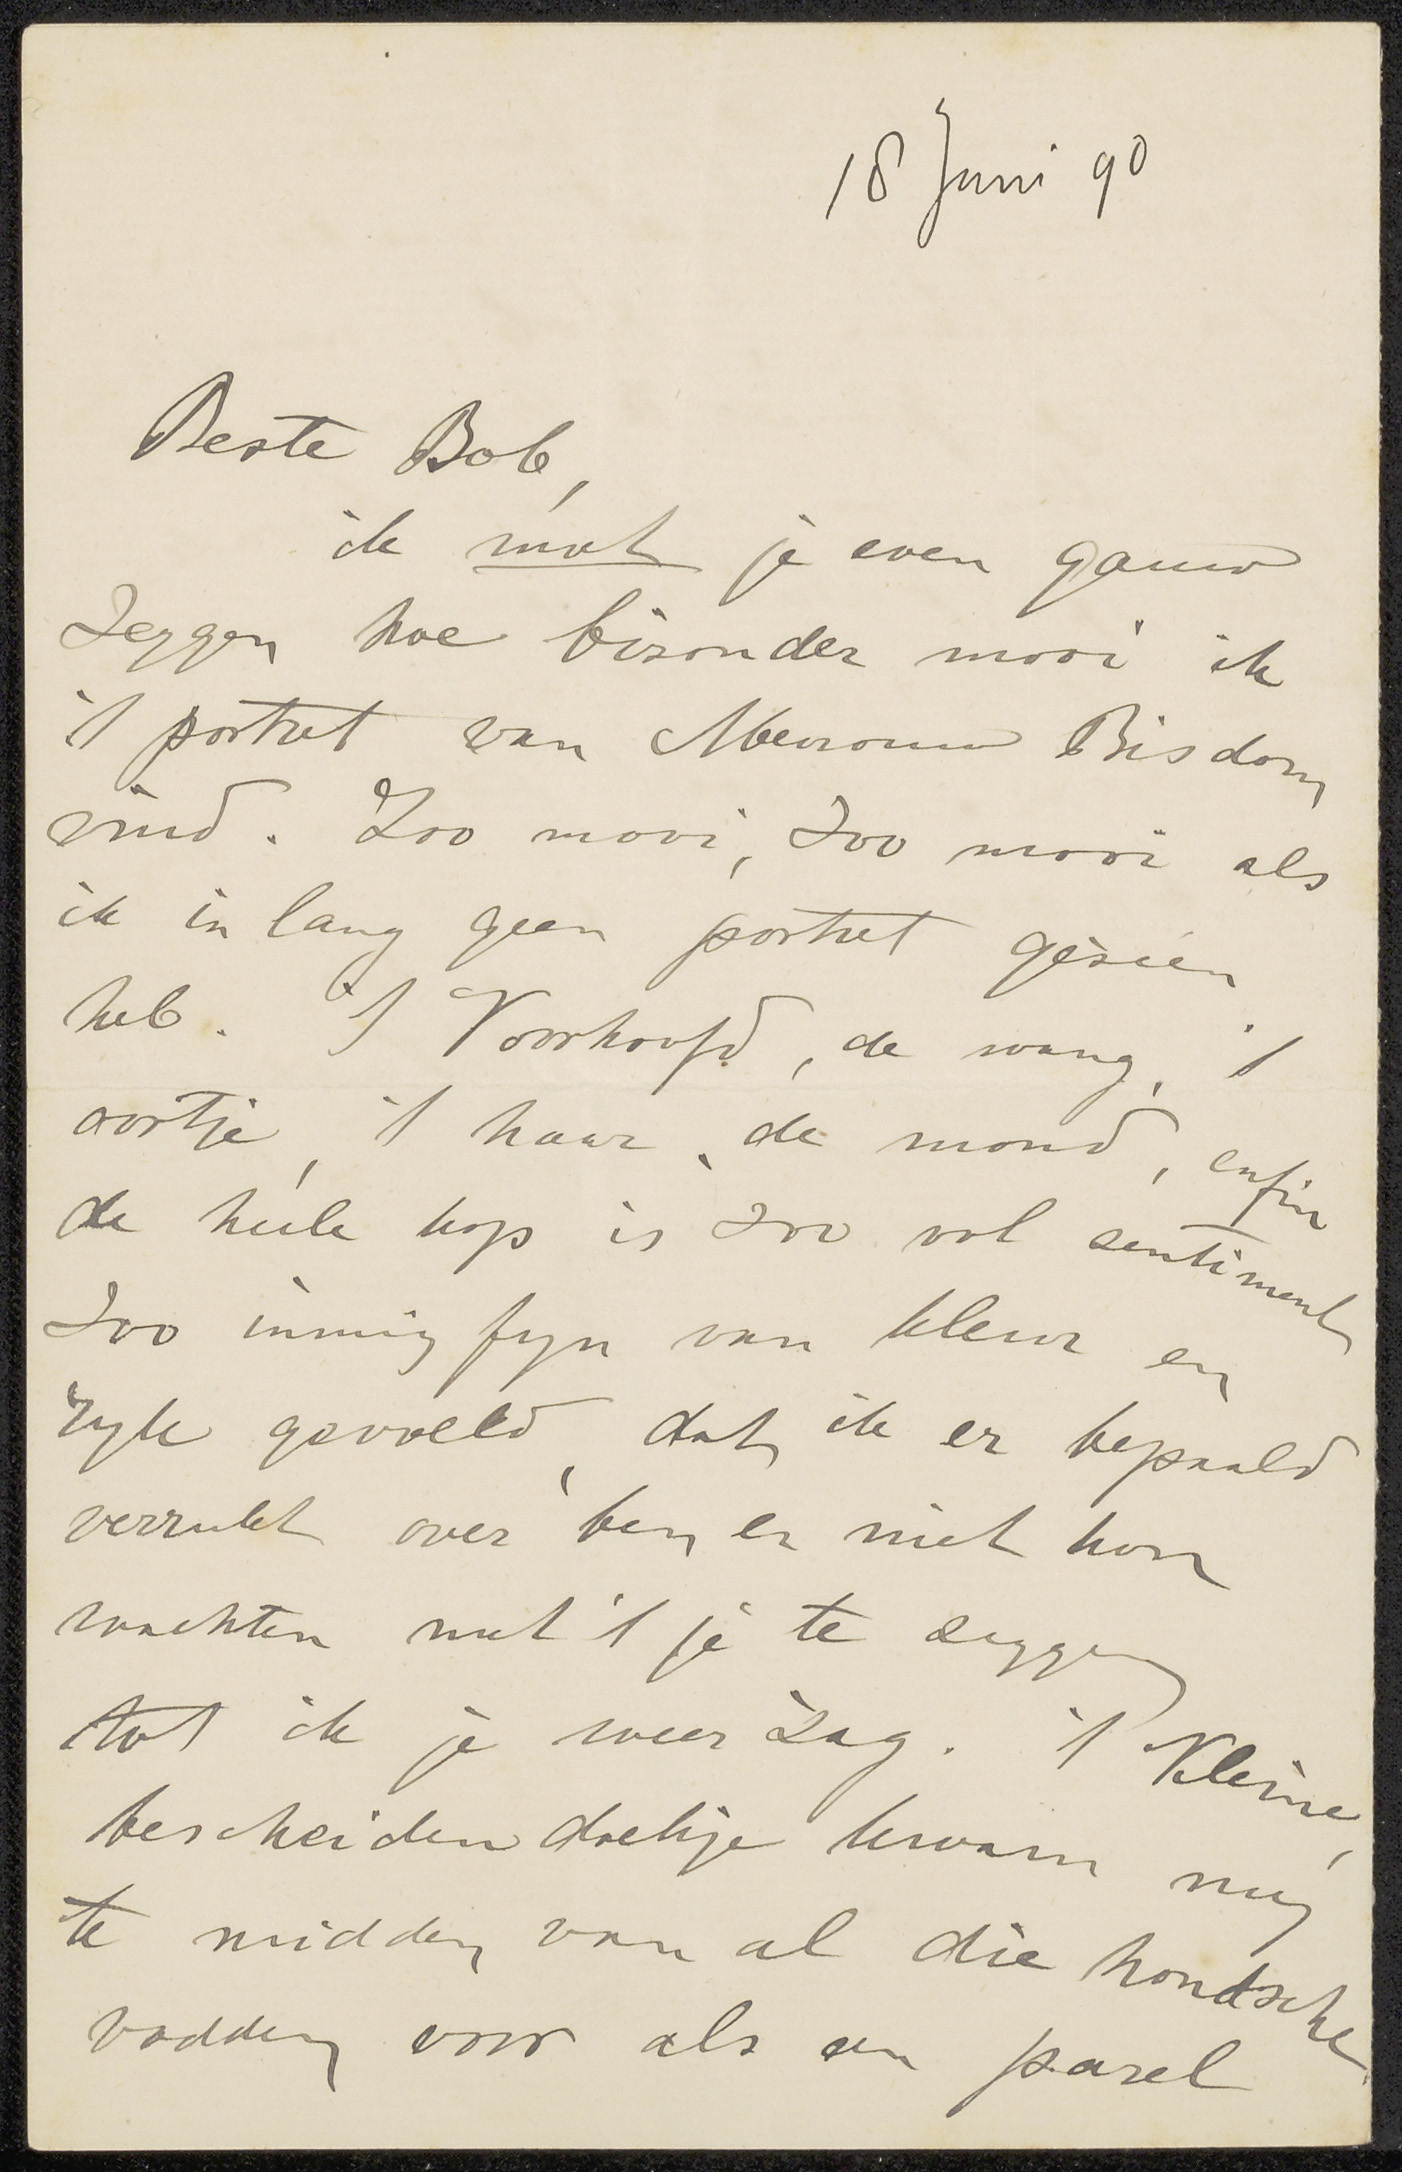 18 Juni 90
Beste Bob,
ik moet je even gauw
zeggen hoe bizonder mooi ik
't portret van Mevrouw Bisdom
vind. Zoo mooi, zoo mooi als
ik in lang geen portret gezien
heb. 't Voorhoofd, de wang, 't
oortje, 't haar, de mond, enfin
de heele kop is zoo vol sentiment
zoo innig fyn van kleur en
ryk gevoeld, dat ik er bepaald
verrukt over ben, er niet kon
wachten met 't je te zeggen
tot ik je weer zag. 't Kleine,
bescheiden doekje kwam my
te midden van al die hondsche
vodden voor als een parel